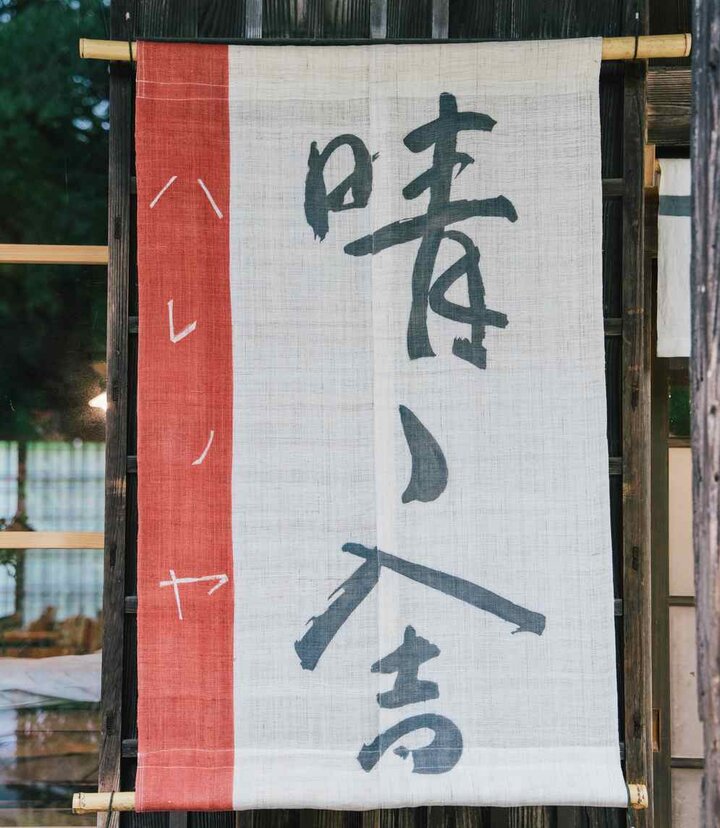 晴ノ舎
ハレノヤ